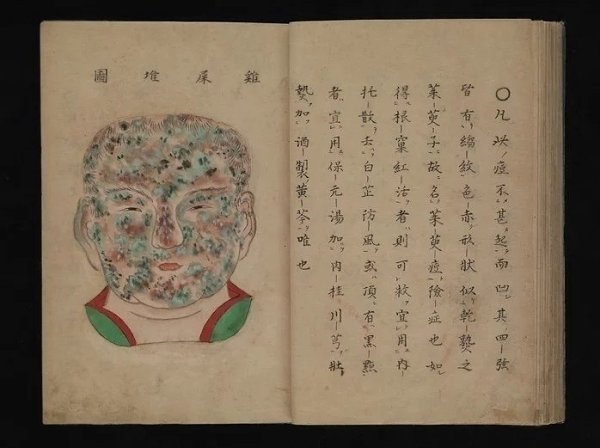 〇凡此痘不甚起而凹其四弦
皆有縐紋色赤形狀似乾熱之
茱萸子故名茱萸痘險症也如
得根窠紅活者則可救宜用內
托散去白芷防風或頂有黑點
者宜用保元湯加內桂川芎壯
熱加酒製黃芩唯也
雞屎堆圖